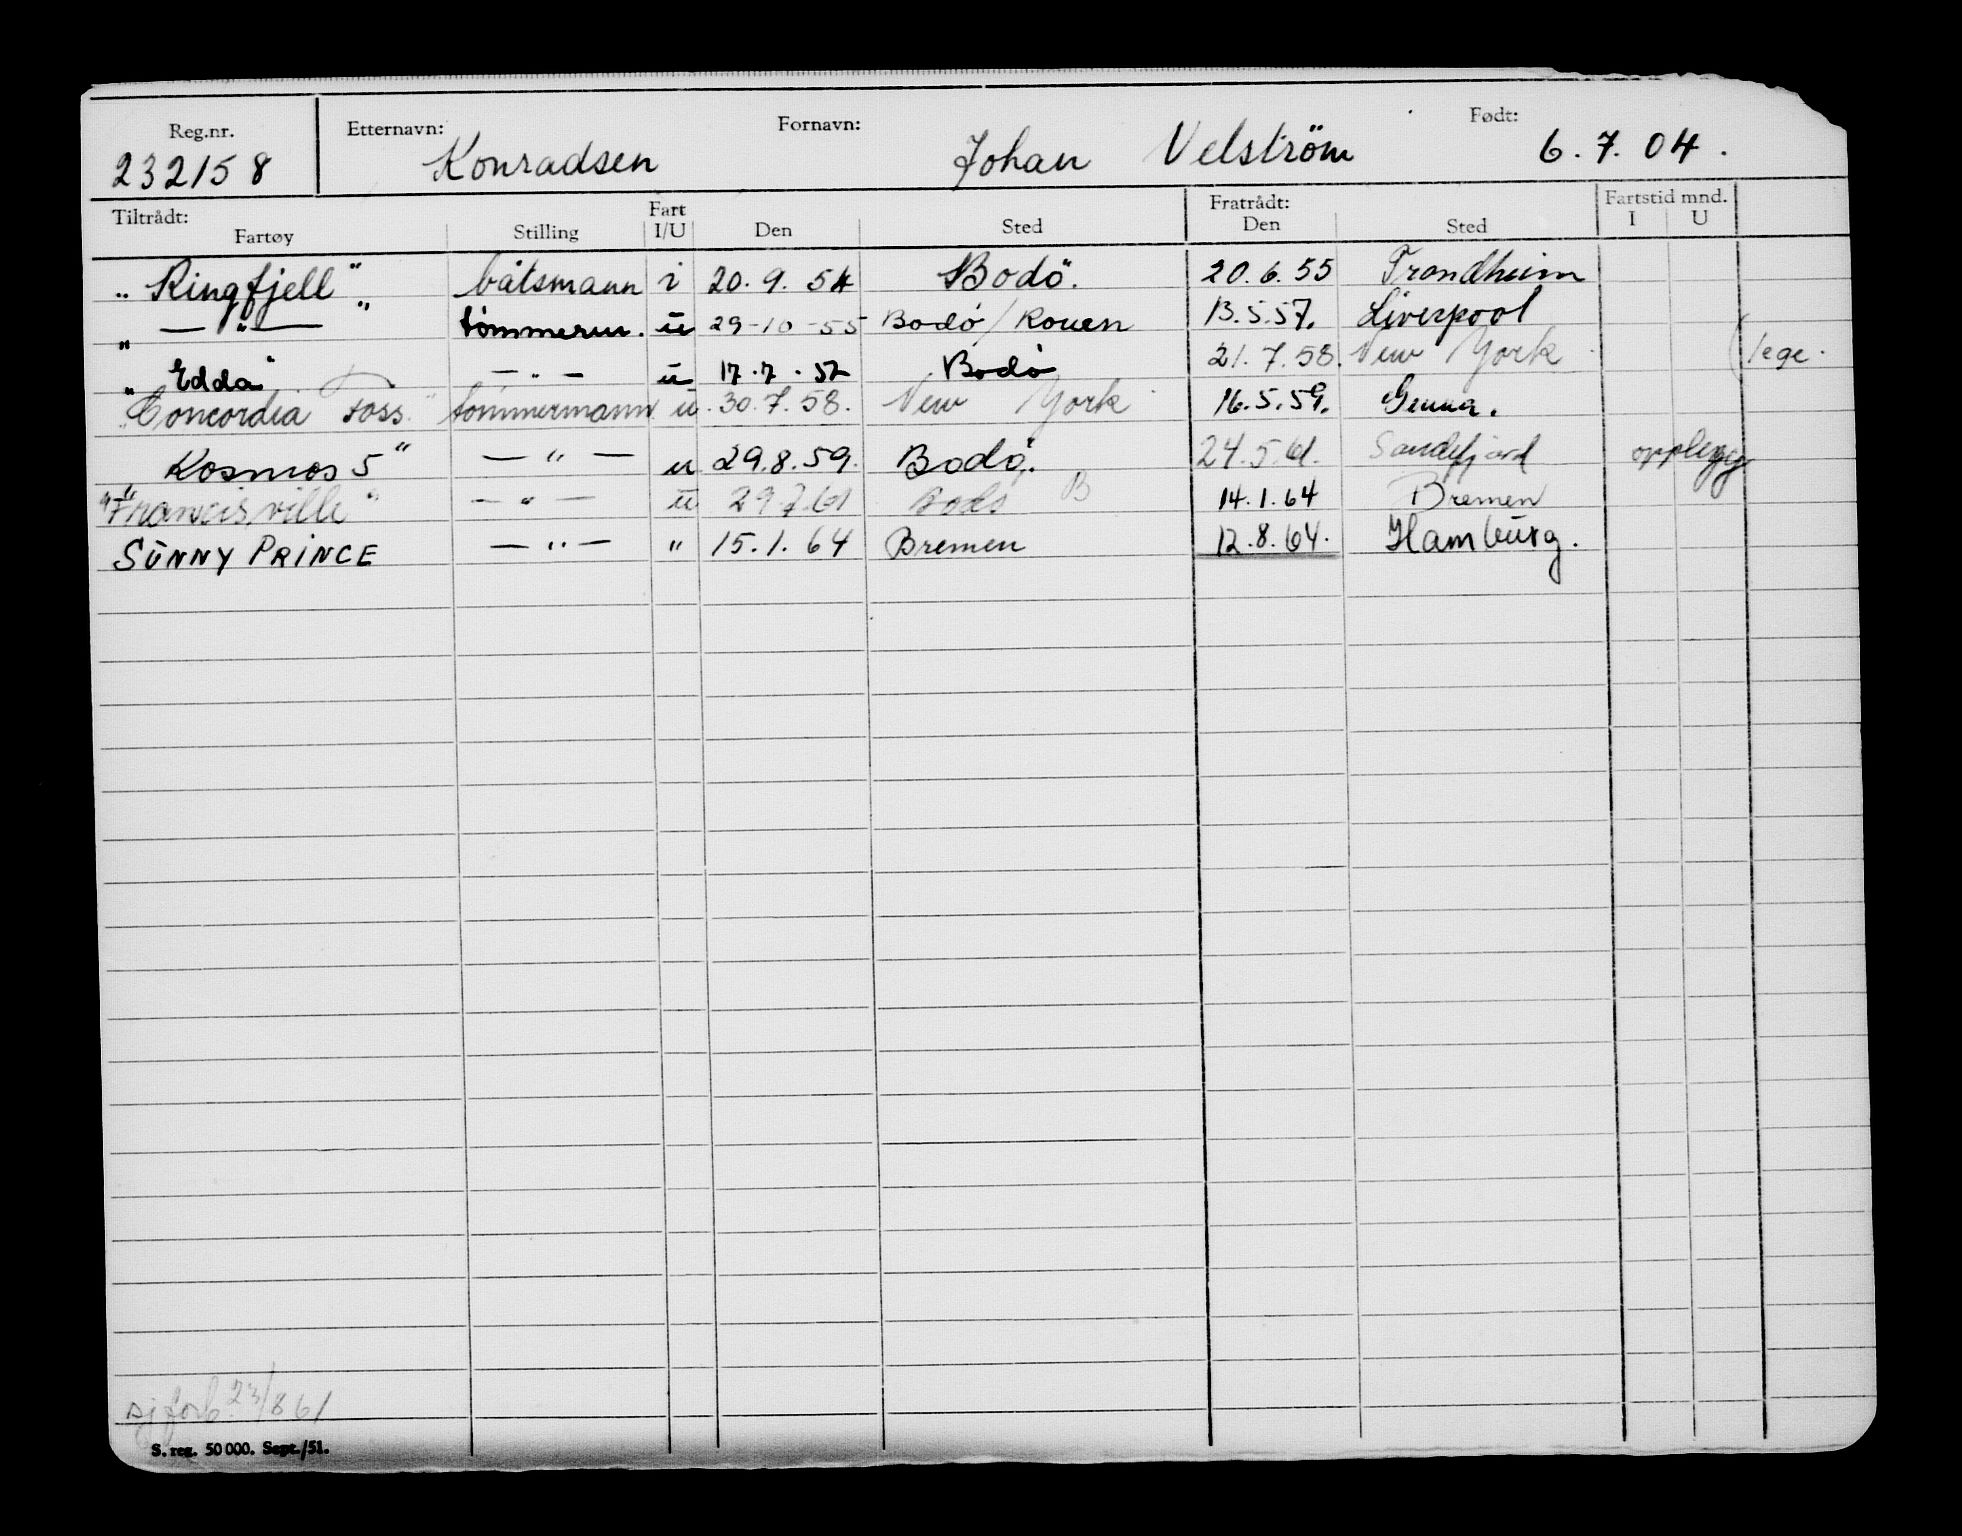 Reg.nr. Etternavn: Fornavn: Født:
232158 Konradsen Johan Velström 6.7.04.
Tiltrådt: Fratrådt: Fartstid mnd.
Fartøy Stilling Fart I/U Den Sted Den Sted I U
"Ringfjell" båtsmann i 20.9.54 Bodö. 20.6.55 Trondheim
" — " — " tømmerm. u 29-10-55 Bodø/Rouen 13.5.57. Liverpool
"Edda" — " — u 17.7.57 Bodø 21.7.58. New York (lege.
"Concordia Foss" tømmermann u. 30.7.58. New York 16.5.59. Genua.
Kosmos 5" — " — u 29.8.59. Bodø. 24.5.61. Sandefjord opplegg
"Francisville" — " — u 29.7.61 Bodø B 14.1.64 Bremen
SUNNY PRINCE — " — " 15.1.64 Bremen 12.8.64. Hamburg.
sj forb 23/8 61
S. reg. 50 000. Sept./51.